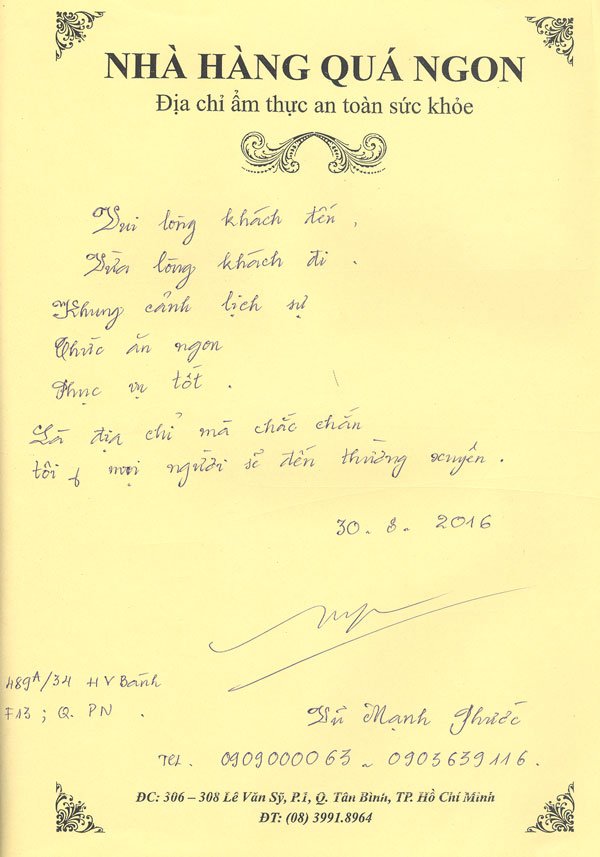 NHÀ HÀNG QUÁ NGON
Địa chỉ ẩm thực an toàn sức khỏe
Vui lòng khách đến,
Vừa lòng khách đi.
Khung cảnh lịch sự
Thức ăn ngon
Phục vụ tốt.
Là địa chỉ mà chắc chắn
tôi & mọi người sẽ đến thường xuyên.
30. 8. 2016
489A/34 HV Bánh
F13; Q. PN.
Vũ Mạnh Phước
Tel. 0909000063 - 0903639116.
ĐC: 306 – 308 Lê Văn Sỹ, P.1, Q. Tân Bình, TP. Hồ Chí Minh
ĐT: (08) 3991.8964